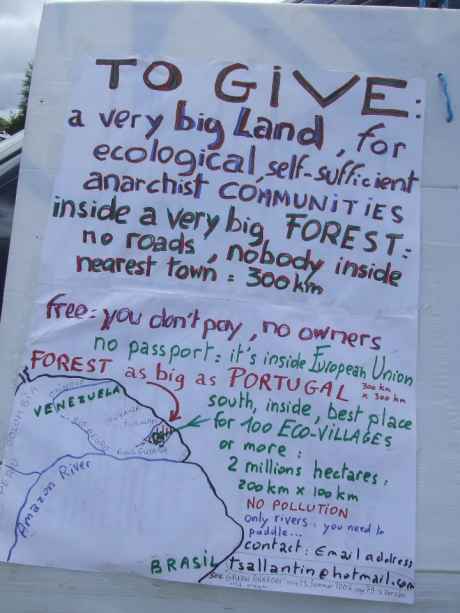 TO GIVE:
a very big Land, for
ecological, self-sufficient
anarchist COMMUNITIES
inside a very big FOREST:
no roads, nobody inside
nearest town: 300km
free: you don't pay, no owners
no passport: it's inside European Union
FOREST as big as PORTUGAL
300 km
x 300 km
south, inside, best place
for 100 ECO-VILLAGES
or more:
2 millions hectares:
200km x 100km
NO POLLUTION
only rivers: you need to
puddle...
contact: Email address
tsallantin@hotmail.com
VENEZUELA
Amazon River
BRASIL
see GREEN